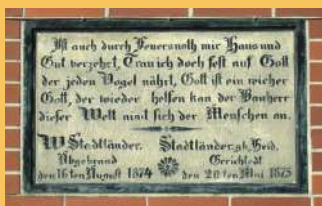 Ist auch durch Feuersnoth mir Haus und
Gut verzehrt, Trau ich doch fest auf Gott
der jeden Vogel nährt, Gott ist ein reicher
Gott, der wieder helfen kan der Bauherr
dieser Welt nimt sich der Menschen an.
W Stedtländer. Stadtländer. gb. Heid.
Abgebrand Gerichtedt
den 16 ten August 1874 den 20 ten Mai 1875